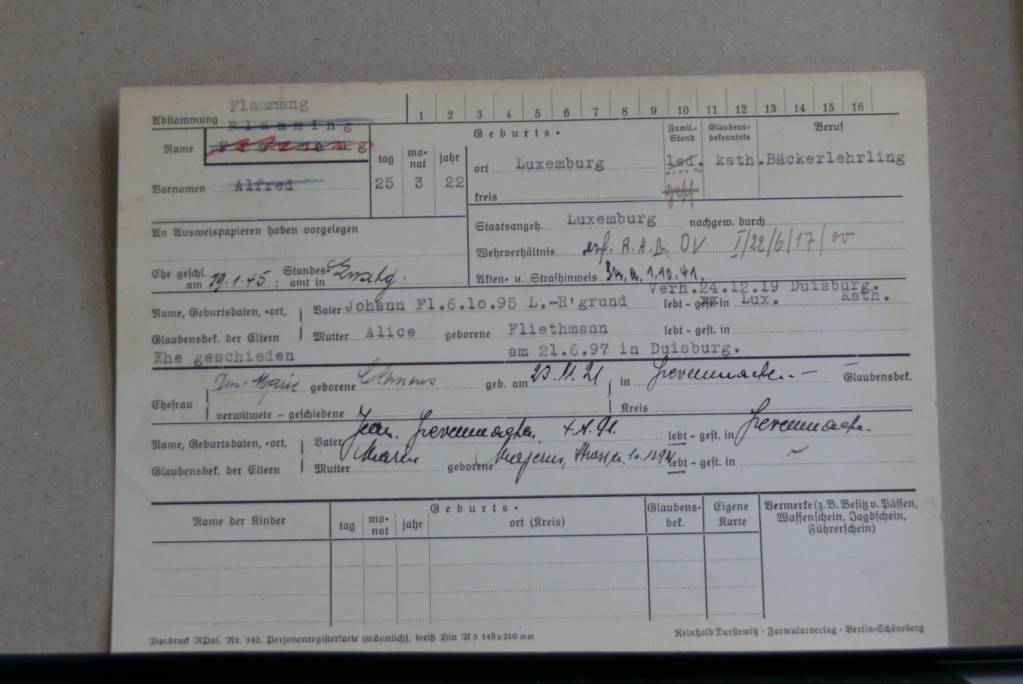 Flammang
Abstammung Flamming 1 2 3 4 5 6 7 8 9 10 11 12 13 14 15 16
Name
tag monat jahr
Geburts-
Famil.-Stand Glaubensbekenntnis Beruf
ort Luxemburg led. kath. Bäckerlehrling
Vornamen Alfred 25 3 22
kreis
An Ausweispapieren haben vorgelegen
Staatsangeh. Luxemburg nachgew. durch
Wehrverhältnis erf. R.A.D. OV I/22/6/17/
Ehe geschl. am 29.1.45; Standesamt in
Akten- u. Strafhinweis 1.10.41.
Verh. 24.12.19 Duisburg.
Name, Geburtsdaten, -ort, Vater Johann Fl. 6.10.95 L.-R'grund lebt - gest. in Lux. Kath.
Glaubensbek. der Eltern Mutter Alice geborene Fliethmann lebt - gest. in
Ehe geschieden am 21.6.97 in Duisburg.
Ehefrau Marie geborene Clemens geb. am 23.11.21 in Grevenmacher.- Glaubensbek.
verwitwete - geschiedene Kreis
Name, Geburtsdaten, -ort, Vater Jean, Grevenmacher lebt - gest. in Grevenmacher.
Glaubensbek. der Eltern Mutter Maria geborene Majerus, lebt - gest. in
Name der Kinder Geburts- tag monat jahr ort (Kreis) Glaubensbek. Eigene Karte Vermerke (z. B. Besitz v. Pässen,
Waffenschein, Jagdschein,
Führerschein)
Vordruck RPol. Nr. 142, Personenregisterkarte (männlich), weiß Din A 5 148 x 210 mm
Reinhold Durstewitz · Formularverlag · Berlin-Schöneberg